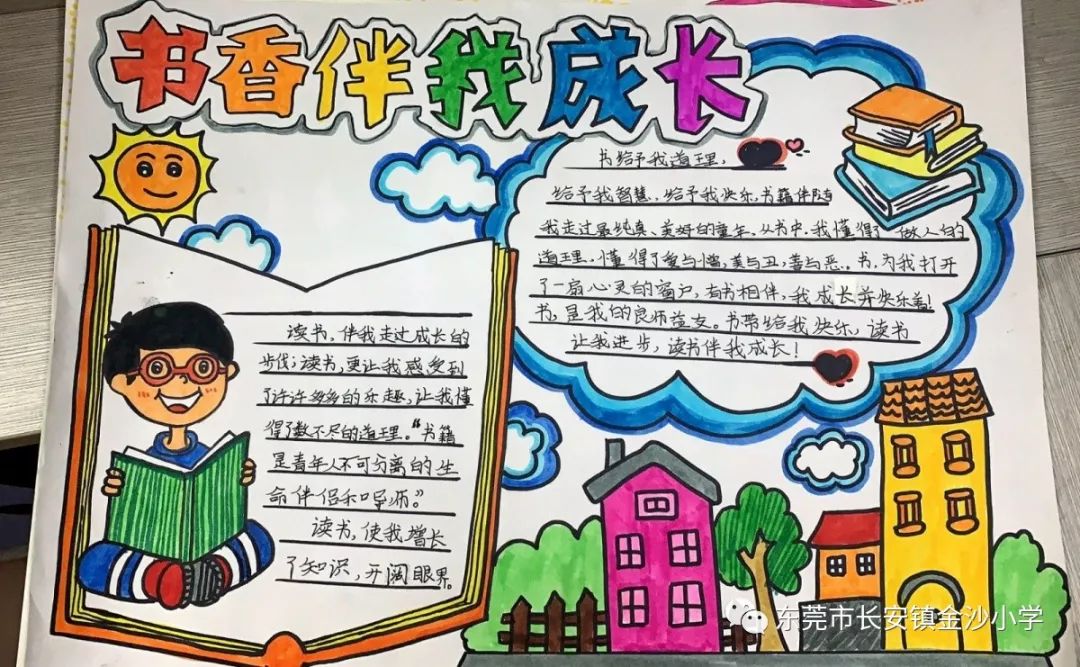 书香伴我成长
书给予我道理,
给予我智慧,给予我快乐,书籍伴随
我走过最纯真、美好的童年。从书中,我懂得了做人的
道理,懂得了爱与憎,美与丑,善与恶。书,为我打开
了一扇心灵的窗户,有书相伴,我成长并快乐着!
书,是我的良师益友。书带给我快乐,读书
让我进步,读书伴我成长!
读书,伴我走过成长的
步伐;读书,更让我感受到
了许许多多的乐趣,让我懂
得了数不尽的道理。“书籍
是青年人不可分离的生
命伴侣和导师。”
读书,使我增长
了知识,开阔眼界。
东莞市长安镇金沙小学